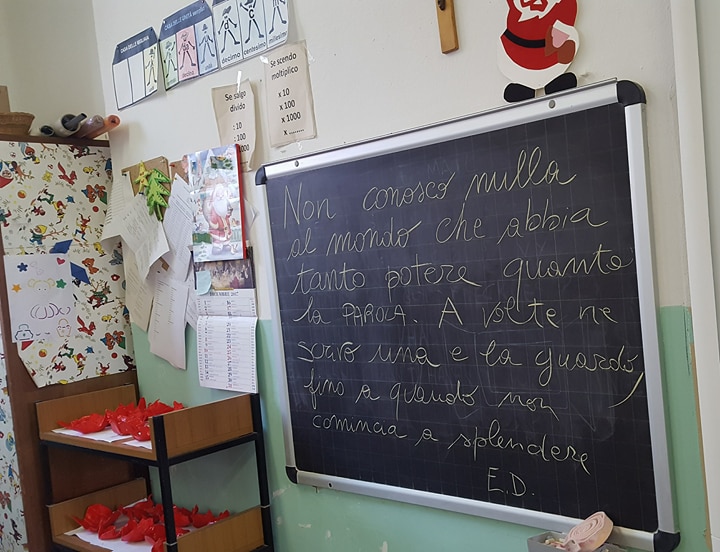 CASA DELLE MIGLIAIA
CASA DELLE UNITÀ semplici
decimo
centesimo
millesimo
Se salgo
divido
: 10
: 100
: 1000
Se scendo
moltiplico
x 10
x 100
x 1000
x .......
Non conosco nulla
al mondo che abbia
tanto potere quanto
la PAROLA. A volte ne
scrivo una e la guardo,
fino a quando non
comincia a splendere
E.D.
DICEMBRE 2017